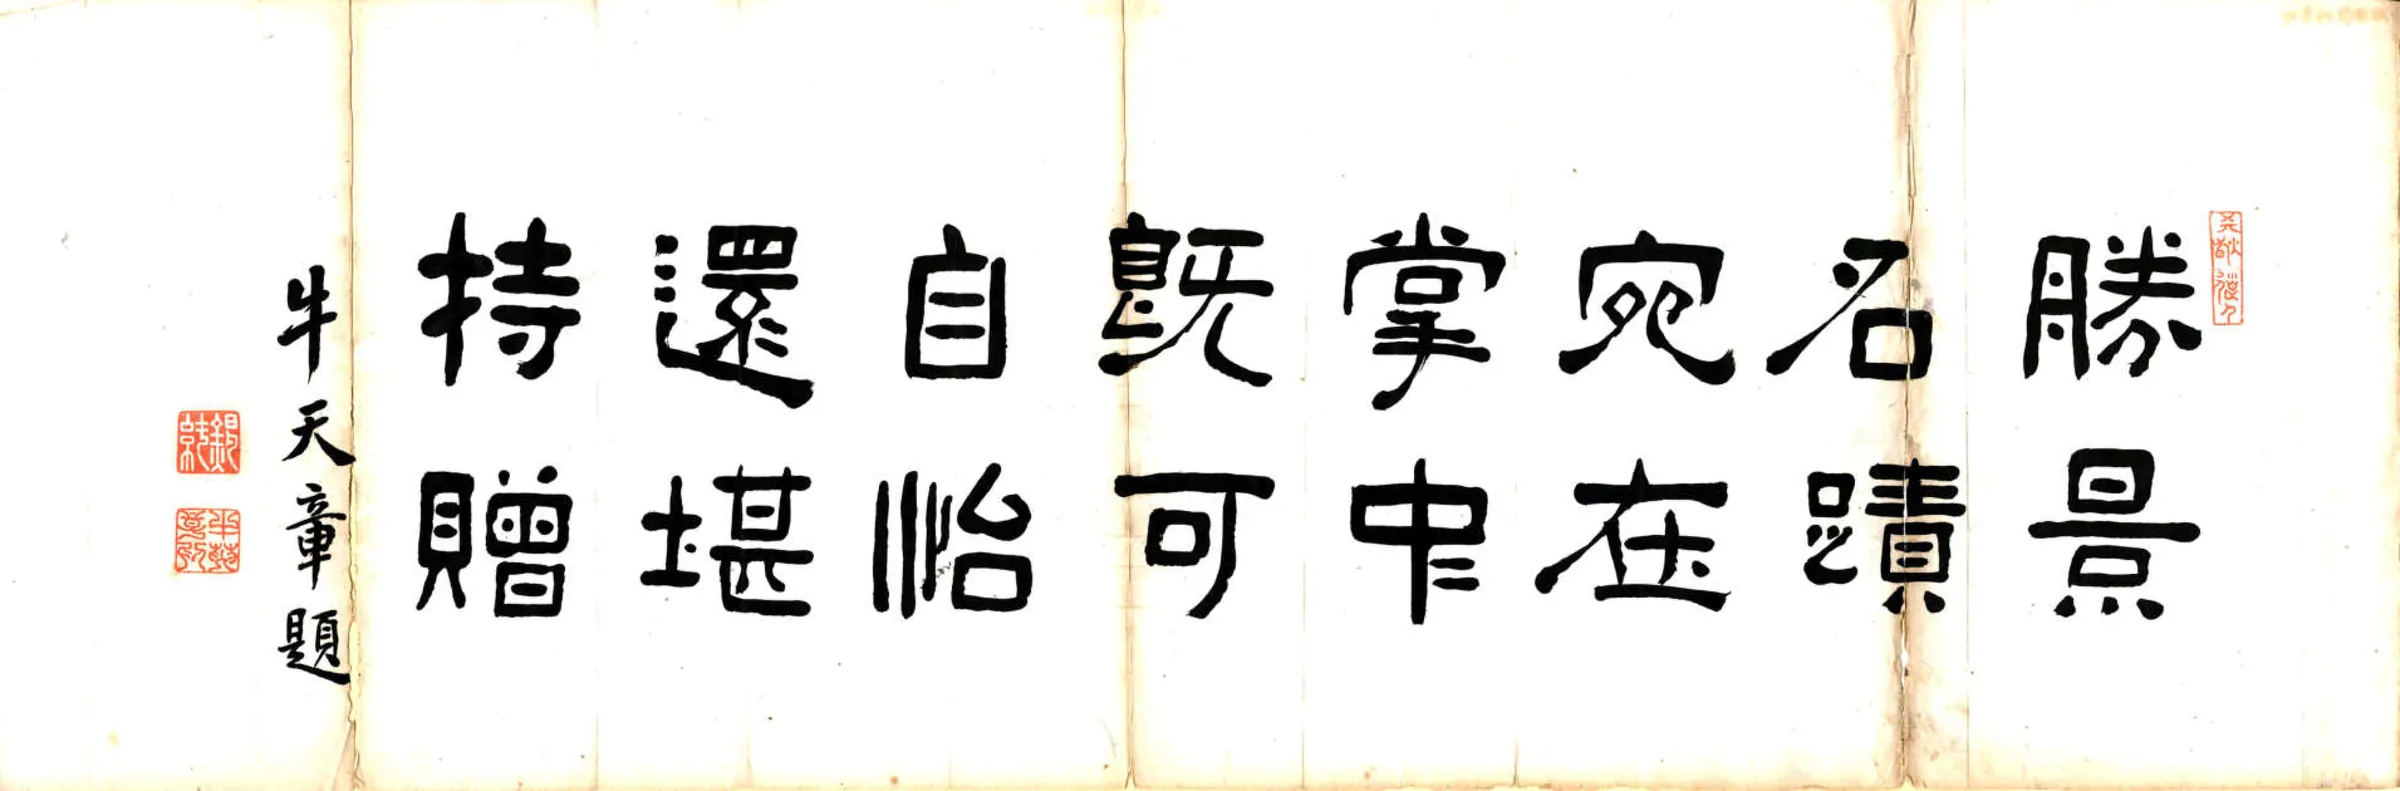 勝景
名蹟
宛在
掌中
既可
自怡
還堪
持贈
牛天章題